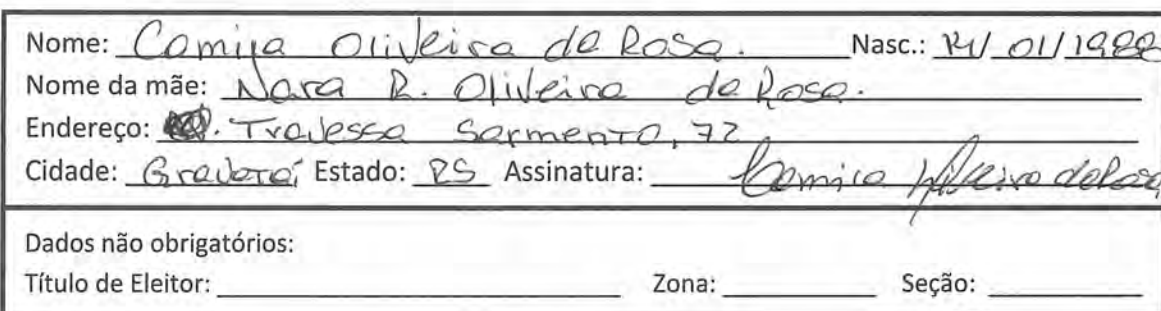 Nome: Camila Oliveira da Rosa. Nasc.: 14/01/1988
Nome da mãe: Nara R. Oliveira da Rosa.
Endereço: . Travessa Sarmento, 72
Cidade: Gravataí Estado: RS Assinatura: Camila Oliveira da Rosa
Dados não obrigatórios:
Título de Eleitor: Zona: Seção: